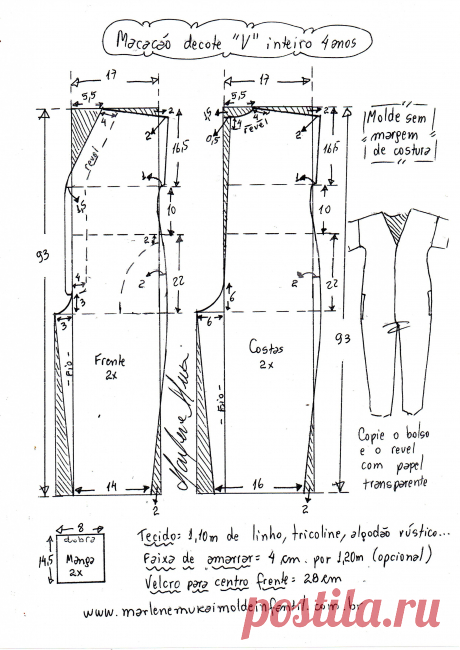 Macacão decote "V" inteiro 4 anos
17
17
5,5
5,5
4
4
4
revel
revel
2
2
2
2
1,5
0,5
16,5
16,5
Molde sem
margem
de costura
1
1
1,5
10
10
93
93
2
2
2
22
22
4
1
3
3
6
6
Frente
2x
Costas
2x
- Fio -
- Fio -
Marlene Mukai
14
16
2
2
Copie o bolso
e o revel
com papel
transparente
8
dobra
14,5
Manga
2x
Tecido: 1,10m de linho, tricoline, algodão rústico...
Faixa de amarrar = 4 cm por 1,20m (opcional)
Velcro para centro frente = 28cm
www.marlenemukaimoldeinfantil.com.br
postila.ru